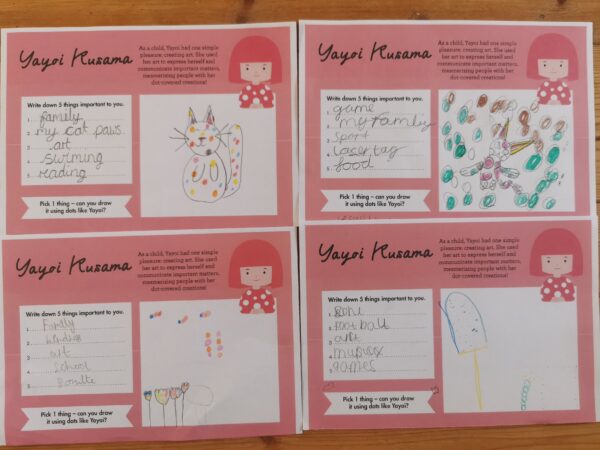 Yayoi Kusama
As a child, Yayoi had one simple
pleasure: creating art. She used
her art to express herself and
communicate important matters,
mesmerising people with her
dot-covered creations!
Write down 5 things important to you.
1. family
2. my cat paws
3. art
4. swiming
5. reading
Pick 1 thing – can you draw
it using dots like Yayoi?
Yayoi Kusama
As a child, Yayoi had one simple
pleasure: creating art. She used
her art to express herself and
communicate important matters,
mesmerising people with her
dot-covered creations!
Write down 5 things important to you.
1. game
2. my family
3. sport
4. laser tag
5. food
Pick 1 thing – can you draw
it using dots like Yayoi?
Yayoi Kusama
As a child, Yayoi had one simple
pleasure: creating art. She used
her art to express herself and
communicate important matters,
mesmerising people with her
dot-covered creations!
Write down 5 things important to you.
1. Family
2.
3. art
4. School
5.
Pick 1 thing – can you draw
it using dots like Yayoi?
Yayoi Kusama
As a child, Yayoi had one simple
pleasure: creating art. She used
her art to express herself and
communicate important matters,
mesmerising people with her
dot-covered creations!
Write down 5 things important to you.
1.
2. football
3. art
4.
5. games
Pick 1 thing – can you draw
it using dots like Yayoi?